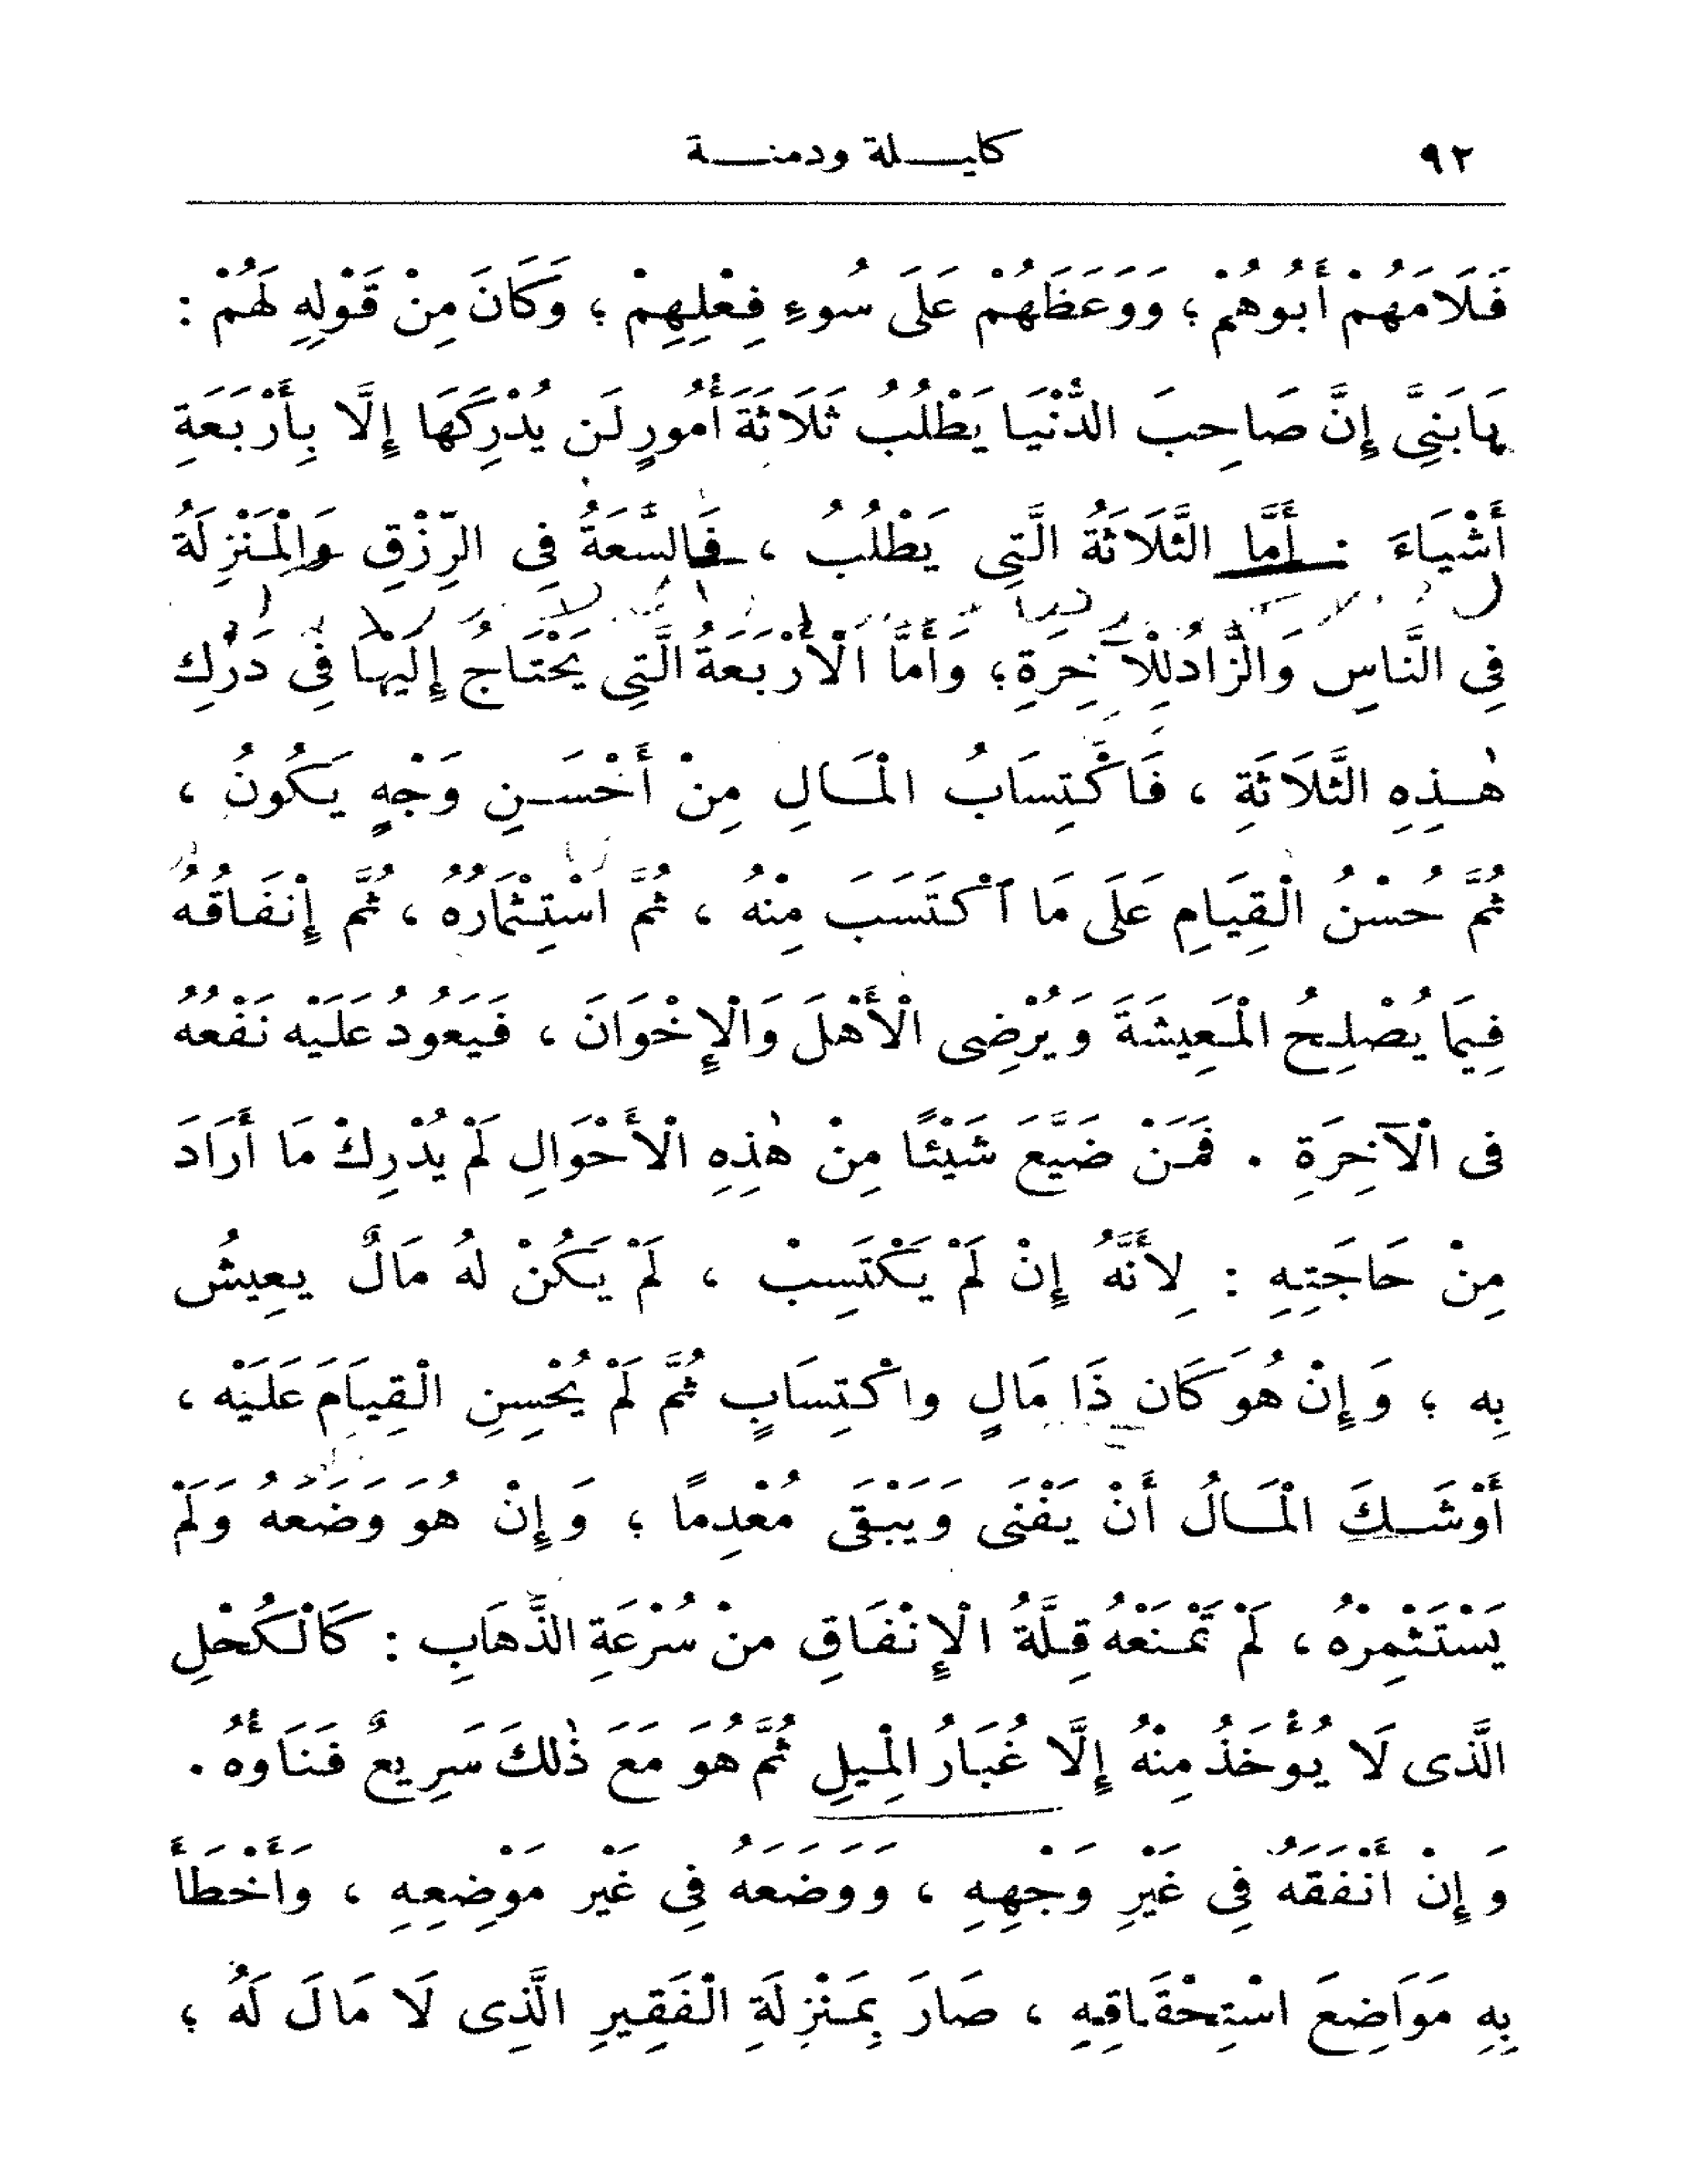 ٩٢ كليلة ودمنة
فَلَامَهُمْ أَبُوهُمْ؛ وَوَعَظَهُمْ عَلَى سُوءِ فِعْلِهِمْ؛ وَكَانَ مِنْ قَوْلِهِ لَهُمْ :
يَابَنِيَّ إِنَّ صَاحِبَ الدُّنْيَا يَطْلُبُ ثَلَاثَةَ أُمُورٍ لَن يُدْرِكَهَا إِلَّا بِأَرْبَعَةِ
أَشْيَاءَ : أَمَّا الثَّلَاثَةُ الَّتِي يَطْلُبُ ، فَالسَّعَةُ فِى الرِّزْقِ وَالْمَنْزِلَةُ
فِى النَّاسِ وَالزَّادُ لِلْآخِرَةِ؛ وَأَمَّا الْأَرْبَعَةُ الَّتِى يَحْتَاجُ إِلَيْهَا فِى دَرْكِ
هٰذِهِ الثَّلَاثَةِ ، فَاكْتِسَابُ الْمَالِ مِنْ أَحْسَنِ وَجْهٍ يَكُونُ ،
ثُمَّ حُسْنُ الْقِيَامِ عَلَى مَا ٱكْتَسَبَ مِنْهُ ، ثُمَّ اسْتِثْمَارُهُ ، ثُمَّ إِنْفَاقُهُ
فِيمَا يُصْلِحُ الْمَعِيشَةَ وَيُرْضِى الْأَهْلَ وَالْإِخْوَانَ ، فَيَعُودُ عَلَيْهِ نَفْعُهُ
فى الْآخِرَةِ . فَمَنْ ضَيَّعَ شَيْئًا مِنْ هٰذِهِ الْأَحْوَالِ لَمْ يُدْرِكْ مَا أَرَادَ
مِنْ حَاجَتِهِ : لِأَنَّهُ إِنْ لَمْ يَكْتَسِبْ ، لَمْ يَكُنْ لهُ مَالٌ يعِيشُ
بِه ؛ وَإِنْ هُوَ كَان ذَا مَالٍ واكْتِسَابٍ ثُمَّ لَمْ يُحْسِنِ الْقِيَامَ عَلَيْه ،
أَوْشَكَ الْمَالُ أَنْ يَفْنَى وَيَبْقَى مُعْدِمًا ؛ وَإِنْ هُوَ وَضَعَهُ وَلَمْ
يَسْتَثْمِرْهُ ، لَمْ تَمْنَعْهُ قِلَّةُ الْإِنْفَاقِ منْ سُرْعَةِ الذَّهَابِ : كَالْكُحْلِ
الَّذى لَا يُؤْخَذُ مِنْهُ إِلَّا غُبَارُ الْمِيلِ ثُمَّ هُوَ مَعَ ذٰلكَ سَرِيعٌ فَنَاؤُهُ .
وَإِنْ أَنْفَقَهُ فِى غَيْرِ وَجْهِهِ ، وَوَضَعَهُ فِى غَيْرِ مَوْضِعِهِ ، وَأَخْطَأَ
بِهِ مَوَاضِعَ اسْتِحْقَاقِهِ ، صَارَ بِمَنْزِلَةِ الْفَقِيرِ الَّذِى لَا مَالَ لَهُ ؛